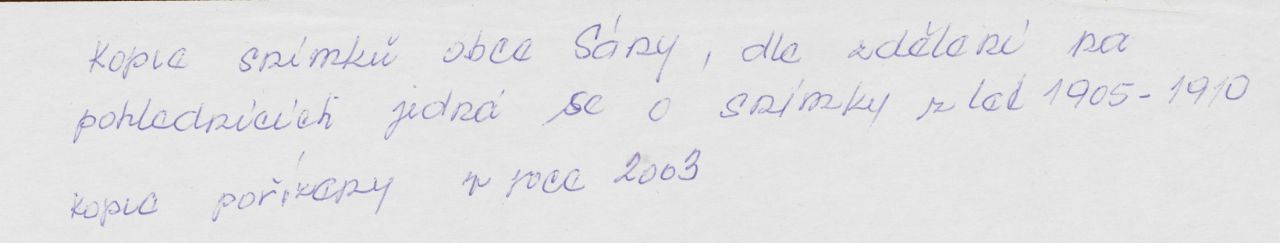 Kopie snímků obce Sány, dle sdělení na
pohlednicích jedná se o snímky z let 1905-1910
kopie pořízeny v roce 2003